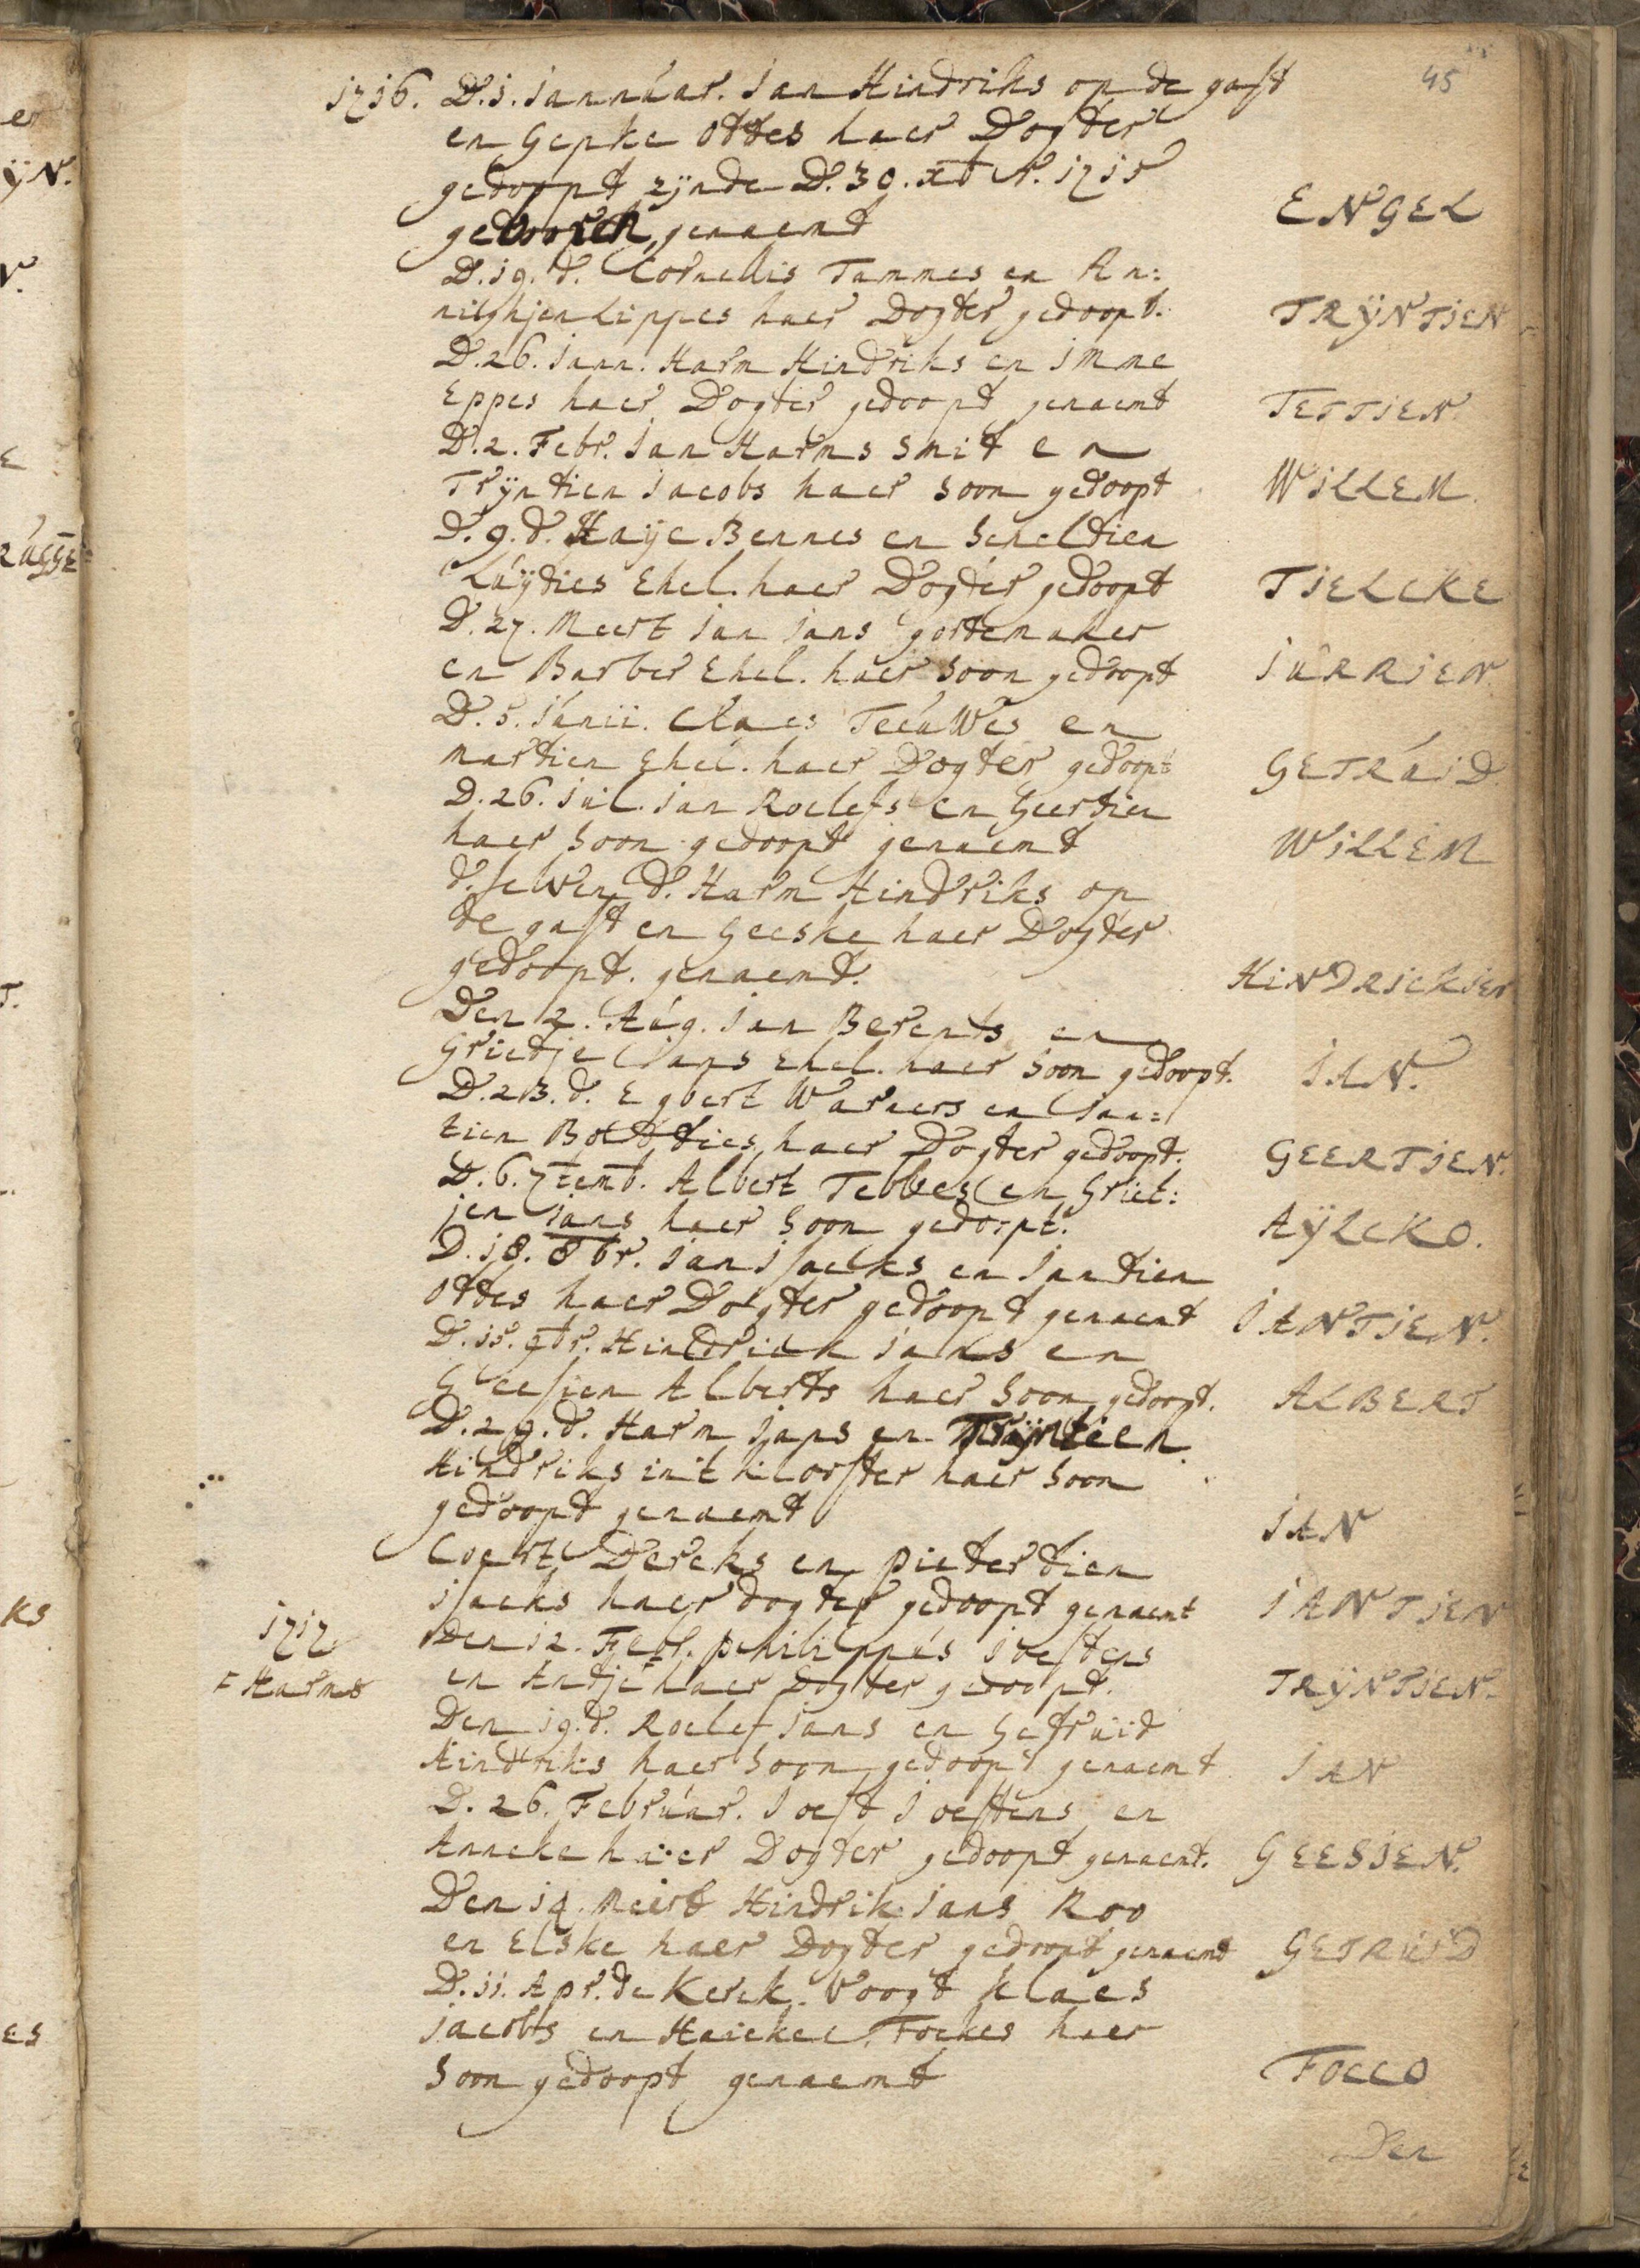 45
1716. D. 1. Jannúar. Jan Hindriks op de gast
en Gepke Ottes haer Dogter
gedoopt zÿnde D. 30. xbr. 1715
gebooren, genaemt ENGEL
D. 19. d. Cornellis Tammes en An:
nighjen Lippes haer Dogter gedoopt. TRŸNTIEN
D. 26. Jann. Harm Hindriks en Imme
Eppes haer Dogter gedoopt genaemt TETTIEN
D. 2. Febr. Jan Harms Smit en
Trÿntien Jacobs haer Soon gedoopt WILLEM.
D. 9. d. Haÿe Bennes en Scheltien
Lúÿties Ehel. haer Dogter gedoopt TIELCKE
D. 27. Meert Jan Jans gortemaker
en Barber Ehel. haer Soon gedoopt JURRIEN.
D. 5. Júnii. Claes Teeúwes en
Martien Ehel. haer Dogter gedoopt GETRÚID
D. 26. Júl. Jan Roelefs en Geertien
haer Soon gedoopt genaemt WILLEM
d. selven d. Harm Hindriks op
de gast en Geeske haer Dogter
gedoopt. genaemt. HINDRICKIEN
Den 2. Aúg. Jan Berents en
Grietje Jans Ehel. haer Soon gedoopt. JAN.
D. 23. d. Egbert Warners en Jan:
tien Boltties haer Dogter gedoopt. GEERTIEN.
D. 6. 7temb. Albert Tebbes en Griet:
jen Jans haer Soon gedoopt. AŸLCKO.
D. 18. 8br. Jan Isacks en Jantien
Ottes haer Dogter gedoopt genaemt JANTIEN.
D. 15. 9br. Hindrick Jans en
Geesien Alberts haer Soon gedoopt. ALBERT
D. 29. d. Harm Jans en Trÿntien
Hindriks in't Klooster haer Soon
gedoopt genaemt JAN
Coert Dercks en Pietertien
Isacks haer dogter gedoopt genaemt JANTIEN
1717 Den 12. Febr. Philippús Joestens
F Harms en Antje haer Dogter gedoopt. TRŸNTIEN.
Den 19. d. Roelef Jans en Getrúid
Hindriks haer Soon gedoopt genaemt JAN
D. 26. Februar. Joest Joestens en
Anneke haer Dogter gedoopt genaemt. GEESIEN.
Den 14. Meert Hindrik Jans Roo
en Elske haer Dogter gedoopt genaemt GETRÚID
D. 11. Apr. de Kerck. Voogt Klaes
Jacobs en Haickee Fockes haer
Soon gedoopt genaemt FOCCO
Den